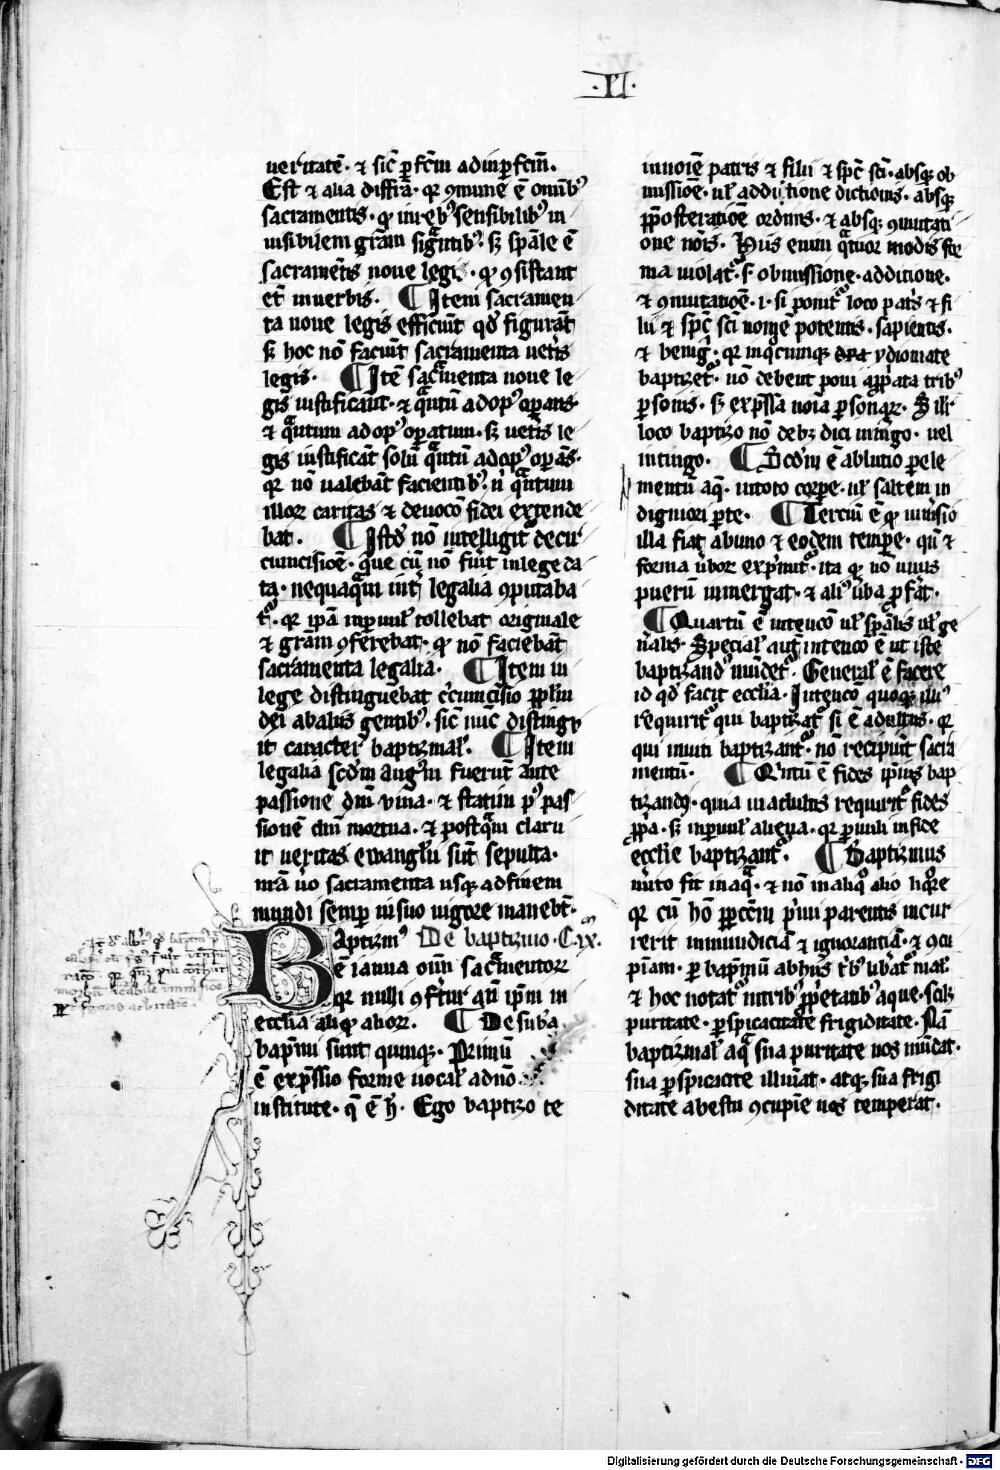 ·VI·
ueritatē· ⁊ sic̄ ꝑfc̄m ad inꝑfc̄m·
Est ⁊ alia diffr̄a· qꝛ ꝯmune ē omībꝰ
sacramentis· ꝙ in rebꝰ sensibilibꝰ in
uisibilem gr̄am signātibꝰ· sꝫ spāle ē
sacramētis noue legis· ꝙ ꝯsistant
et̄ in uerbis· ¶ Item sacramen
ta noue legis efficiūt qd̓ figurāt
sꝫ hoc nō faciūt sacramenta uet̓is
legis· ¶ Itē sacͣmenta noue le
gis iustificant· ⁊ qͣntū ad opꝰ oꝑans·
⁊ qͣntum ad opꝰ oꝑatum· sꝫ uet̓is le
gis iustificāt solū qͣntū ad opꝰ oꝑās·
qꝛ nō ualebāt facientibꝰ· n̓ qͣntum
illoꝝ caritas ⁊ deuoc̄o fidei extende
bat· ¶ Istd̓ nō intelligit̓ de cir
cumcisiōe· que cū nō fuit̓ in lege da
ta· nequaqͣm int̓ legalia ꝯputaba
tꝰ· qꝛ ip̄a in puul̓ tollebat originale
⁊ gr̄am ꝯferebat· ꝙ nō faciebāt
sacramenta legalia· ¶ Item in
lege distinguebat cͥcumcisio pplm̄
dei ab aliis gentibꝰ· sic̄ nūc distingu
it caracter̓ baptizmal̓· ¶ Item
legalia scd̓m aug̓m fuerūt ante
passione dn̄i uiua· ⁊ statim pꝰ pas
sionē dn̄i mortua· ⁊ postqͣm claru
it ueritas ewangl̓ii sūt sepulta·
n̄r̄a ùo sacramenta usqꝫ ad finem
mundi semꝑ in suo uigore manebūt·
Baptizmꝰ De baptizmo· C·ix·
ē ianua oīm sacͣmentoꝝ
qꝛ nulli ꝯfert̓ur an̄ ip̄m in
ecclīa aliqͦ alioꝝ· ¶ De sub̄a
bap̄mi sunt quinqꝫ· Primū
ē exp̄ssio forme uocal̓ ad nō
institute· q̄ ē h̓· Ego baptizo te
in noīe patris ⁊ filii ⁊ spc̄ sc̄i· absqꝫ ob
missiōe· ul̓ additione dictionis· absqꝫ
p̄posteratiōe ordinis· ⁊ absqꝫ ꝯmutati
one nōis· Hiis enim qͣtuor modis for
ma uiolatꝰ· s· obmissione· additione·
⁊ ꝯmutatiōe· i· si ponitꝰ loco pat̓s ⁊ fi
lii ⁊ spc̄ sc̄i nomē potentis· sapientis·
⁊ benig̓· qꝛ in qͣcunqꝫ ydiomate
baptizet̓· nō debent poni app̓ata tribꝰ
ꝑsonis· sꝫ exp̄ssa noīa ꝑsonaꝝ· Sil̓i
loco baptizo nō debꝫ dici mingo· uel
intingo· ¶ Scd̓m ē ablutio ꝑ ele
mentū aq̄· in toto corꝑe· ul̓ saltem in
digniori ꝑte· ¶ Terciū ē ꝙ im̄sio
illa fiat ab uno ⁊ eodem temꝑe· qn̄ ⁊
forma ùboꝝ exp̄mit̓· ita ꝙ nō unus
puerū inmergat· ⁊ aliꝰ ùba ꝓfāt·
¶ Quartū ē intenc̄o ul̓ spālis ul̓ ge
n̄alis· Special̓ aut̄ intenc̄o ē ut iste
baptizandꝰ mūdet̓· General̓ ē facere
id qd̓ facit eccl̓ia· Intenc̄o quoqꝫ illiꝰ
requirit̓ qui baptizat̓ si ē adultus· qꝛ
qui inuiti baptizant̓· nō recipiūt sacra
mentū· ¶ Qͥntū ē fides ip̄ius bap
tizandi· quia in adultis requirit̓ fides
p̄pa· sꝫ in puul̓ aliena· qꝛ paruuli in fide
eccl̓ie baptizant̓· ¶ Baptizmus
m̓ito fit in aqͣ· ⁊ nō in aliqͦ alio liqͦre
qꝛ cū hō ꝑ pc̄cm̄ pͥmi parentis incur
rerit inmundiciā ⁊ ignorantiā· ⁊ ꝯcu
pīam· ꝑ bap̄mū ab hiis tͥbꝰ liƀatꝰ mal̓·
⁊ hoc notatꝰ in tribꝰ p̄petatibꝰ aque· scilꝫ
puritate· ꝑspicacitate frigiditate· Nā
baptizmal̓ aqͣ sua puritate nos mūdat·
sua ꝑspicacite illūat· atqꝫ sua frigi
ditate ab estu ꝯcupīe nos temperat·
Digitalisierung gefördert durch die Deutsche Forschungsgemeinschaft - DFG